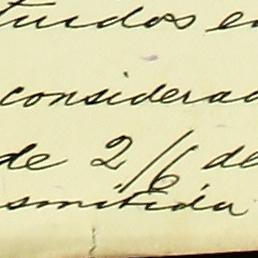 tuidos en
considerad
de 2/6 de
smitida